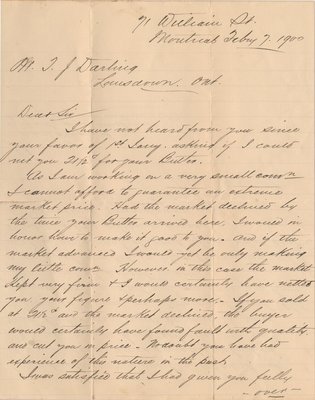 71 William St.
Montreal Feby 7. 1900
M. T J Darling
Lansdown. Ont.
Dear Sir
I have not heard from you since
your favor of 1st Jany. asking if I could
net you 21½c for your Butter.
As I am working on a very small comn
I cannot afford to guarantee an extreme
market price. Had the market declined by
the time your Butter arrived here, I would in
honor have to make it good to you. and if the
market advanced I would yet be only making
my little comn. However in this case the market
kept very firm & I would certainly have netted
you your figure & perhaps more. If you sold
at 21½c and the market declined, the buyer
would certainly have found fault with quality
and cut you in price. No doubt you have had
experience of this nature in the past.
I was satisfied that I had given you fully
- over -